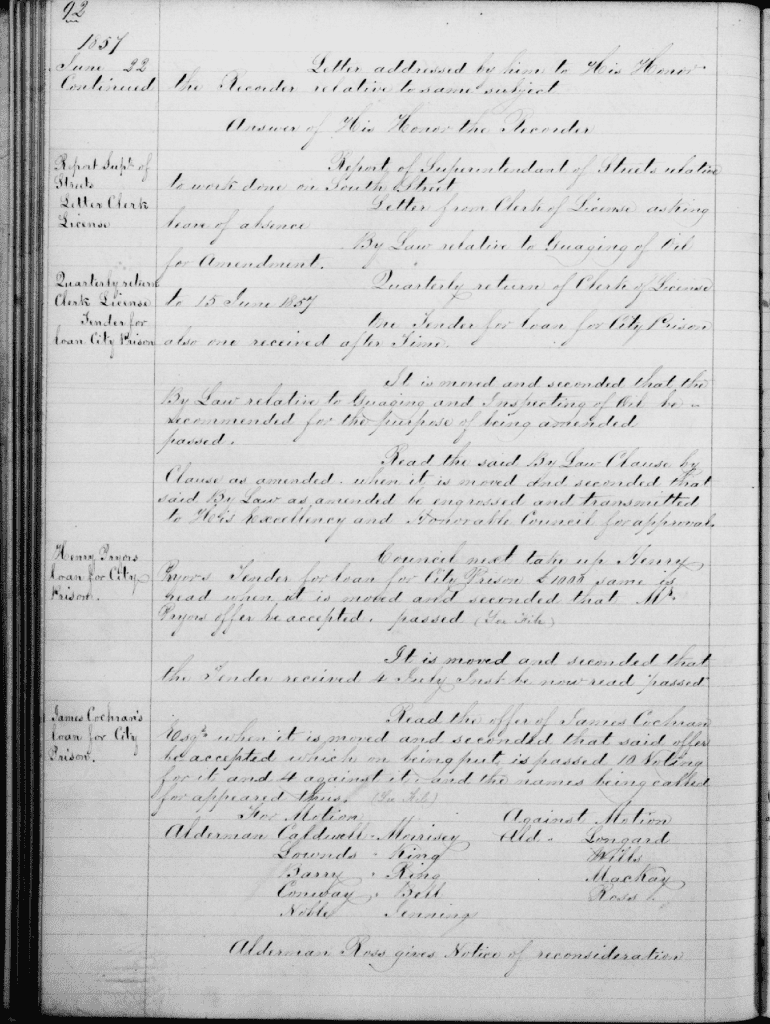 92
1857
June 22
Continued
Letter addressed by him to His Honor
the Recorder relative to same subject
Answer of His Honor the Recorder
Report Supt. of
Streets
Report of Superintendant of Streets relative
to work done on South Street
Letter Clerk
License
Letter from Clerk of License asking
leave of absence
By Law relative to Guaging of Oil
for Amendment.
Quarterly return
Clerk License
Quarterly return of Clerk of License
to 15 June 1857
Tender for
loan City Prison
One Tender for loan for City Prison
also one received after Time.
It is moved and seconded that the
By Law relative to Guaging and Inspecting of Oil be
recommended for the purpose of being amended
passed.
Read the said By Law Clause by
Clause as amended. when it is moved and seconded that
said By Law as amended be engrossed and transmitted
to His Excellency and Honorable Council for approval.
Henry Pryors
loan for City
Prison.
Council next take up Henry
Pryors Tender for loan for City Prison £1000 same is
read when it is moved and seconded that Mr.
Pryors offer be accepted. passed (See File)
It is moved and seconded that
the Tender received 4 July Inst be now read passed
James Cochran's
loan for City
Prison.
Read the offer of James Cochran
Esqr. when it is moved and seconded that said offer
be accepted which on being put is passed 10 Voting
for it and 4 against it. and the names being called
for appeared thus. (See File)
For Motion Against Motion
Alderman Caldwell - Morrisey Ald. Longard
Lownds - King Wills
Barry - Ring MacKay
Conway - Bell Ross
Noble Jennings
Alderman Ross gives Notice of reconsideration